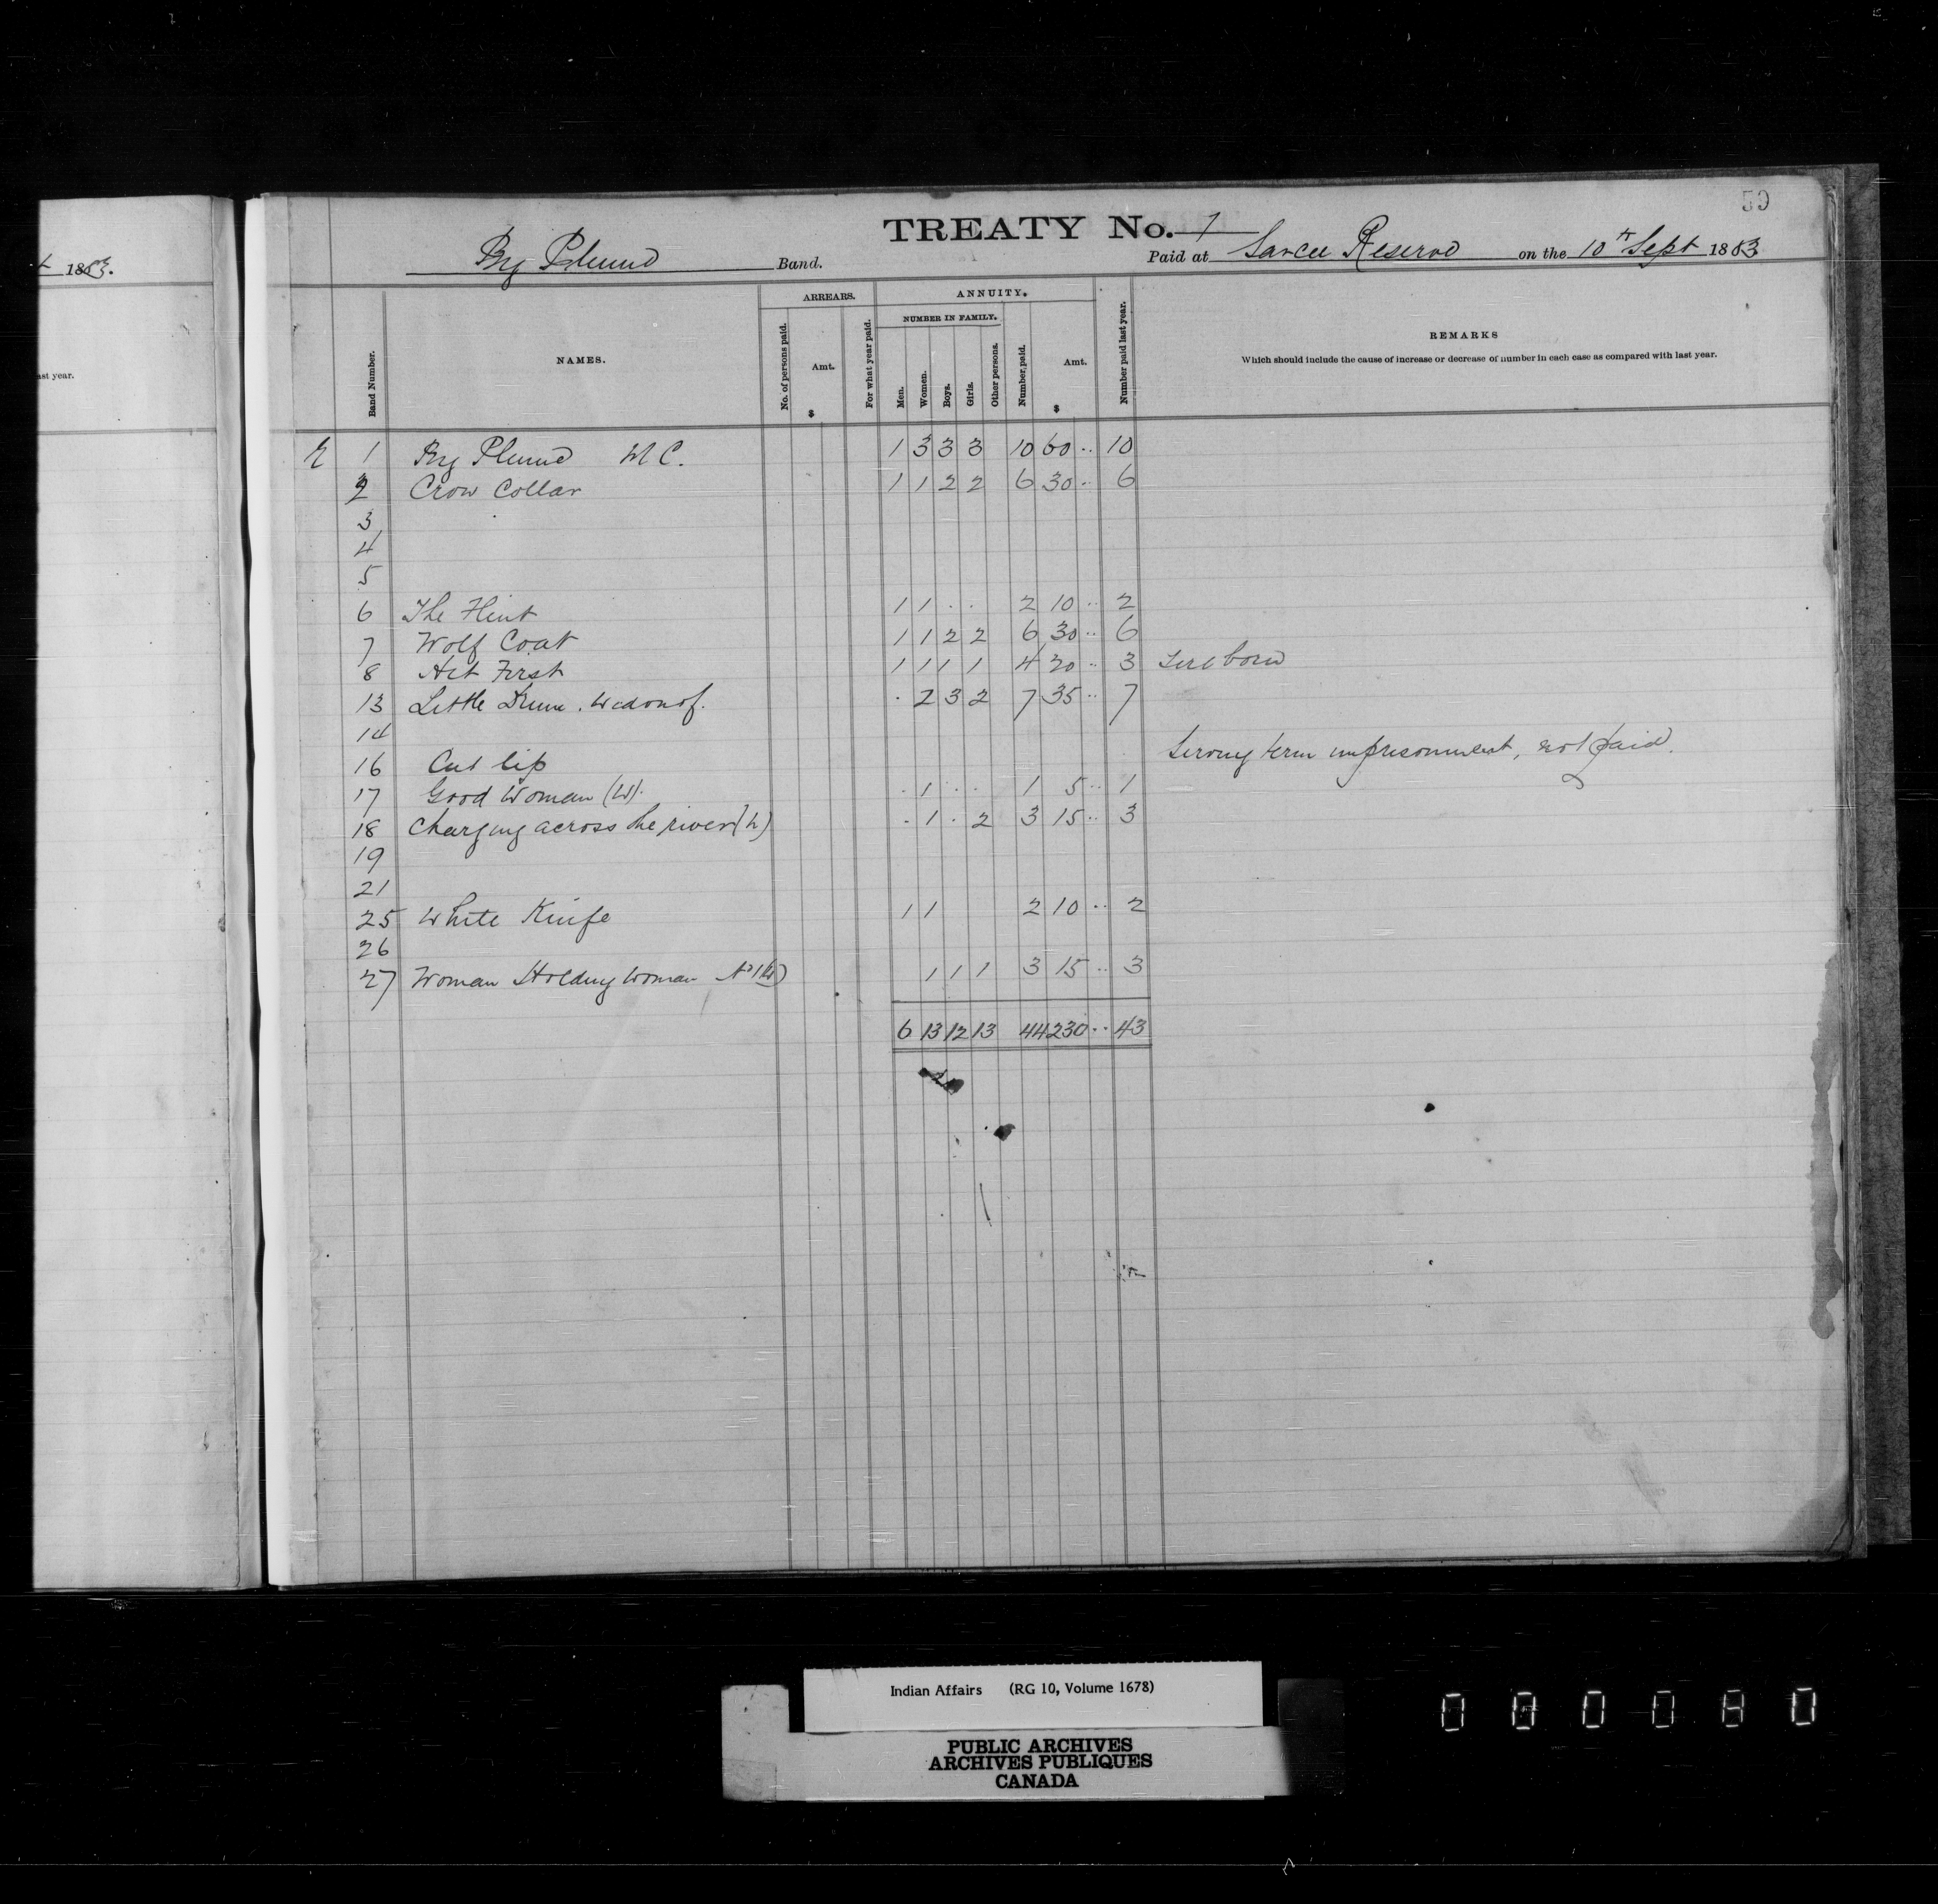 t 1883.
ast year.
59
TREATY No. 7
Big Plume Band. Paid at Sarcee Reserve on the 10th Sept 1883
Band Number. NAMES. ARREARS. No. of persons paid. Amt. $ For what year paid. ANNUITY. NUMBER IN FAMILY. Men. Women. Boys. Girls. Other persons. Number paid. Amt. $ Number paid last year.
REMARKS
Which should include the cause of increase or decrease of number in each case as compared with last year.
1 Big Plume M C. 1 3 3 3 10 60 .. 10
2 Crow Collar 1 1 2 2 6 30 .. 6
3
4
5
6 The Flint 1 1 . . 2 10 .. 2
7 Wolf Coat 1 1 2 2 6 30 .. 6
8 Hit First 1 1 1 1 4 20 .. 3 born
13 Little Drum. Widow of. . 2 3 2 7 35 .. 7
14
16 Cut lip Serving term imprisonment, not paid.
17 Good Woman (W). . 1 . . 1 5 .. 1
18 Charging across the river (W) . 1 . 2 3 15 .. 3
19
21
25 White Knife 1 1 2 10 .. 2
26
27 Woman Holding Woman No 1 (W) 1 1 1 3 15 .. 3
6 13 12 13 44 230 .. 43
Indian Affairs (RG 10, Volume 1678)
PUBLIC ARCHIVES
ARCHIVES PUBLIQUES
CANADA
000080